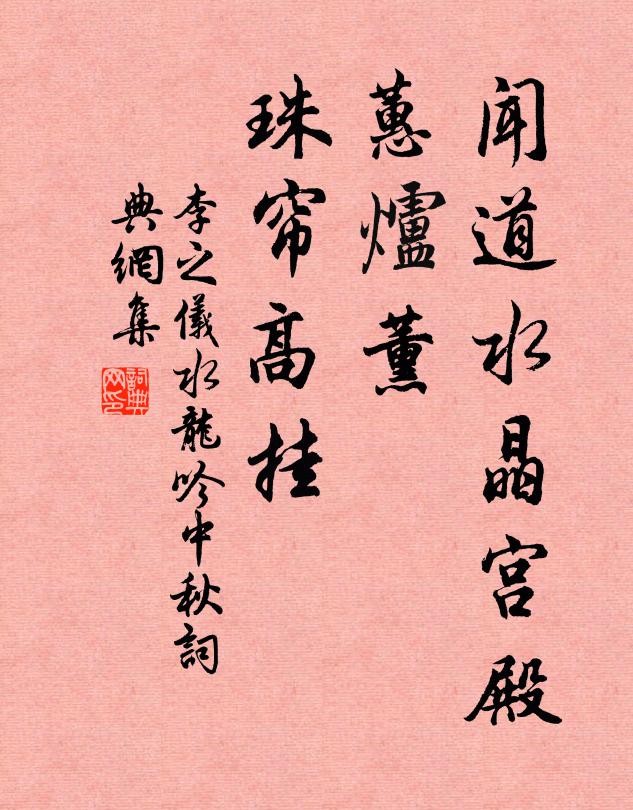 聞道水晶宮殿
蕙爐薰
珠帘高挂
李之儀水龍吟中秋詞
典網集
詞典網印